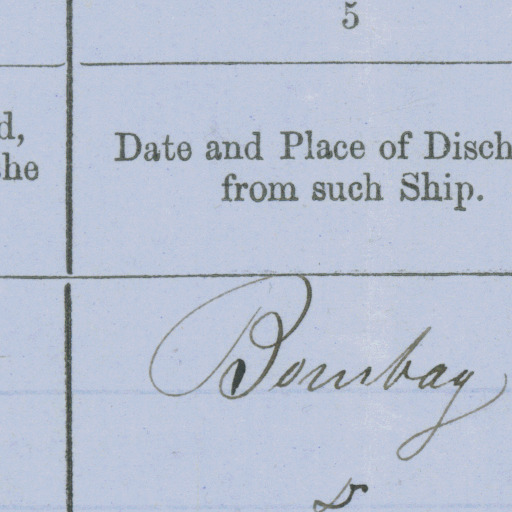 5
d,
the
Date and Place of Disch
from such Ship.
Bombay